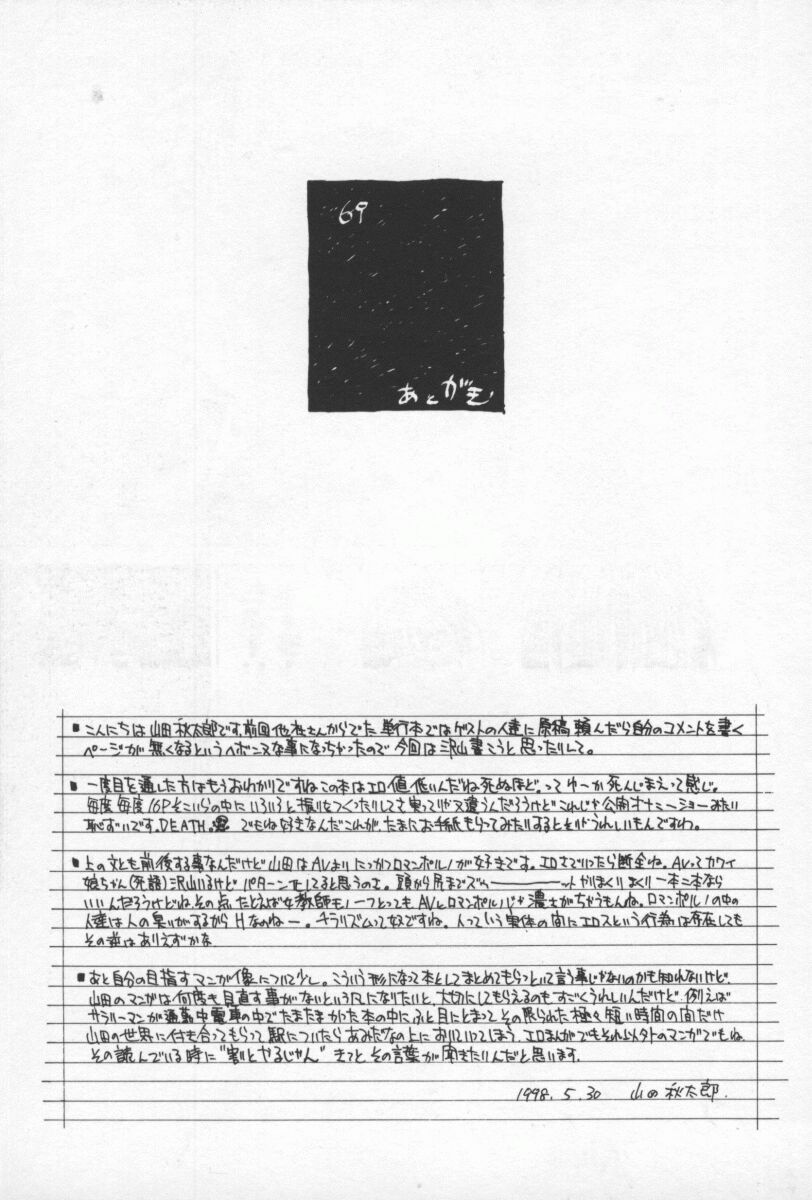 69
あとがき
■こんにちは山田秋太郎です。前回他社さんからでた単行本ではゲストの人達に原稿頼んだら自分のコメントを書く
ページが無くなるというヘボンヌな事になっちゃったので今回は沢山書こうと思ったりして。
■一度目を通した方はもうおわかりですねこの本はエロ値低いんだよね死ぬほど。ってゆーか死んじまえって感じ。
毎度毎度16Pそこいらの中にいろいろと振りをつくったりしてさ実っ
恥ずいです。DEATH。でもね好きなんだこれが。たまにお手紙もらってみたりするとそりゃうれしいもんですわ。
■上の文とも前後する事なんだけど山田はAVよりにっかつロマンポルノが好きです。エロさでいったら断全ね。AVってカワイ
娘ちゃん(死語)沢山いるけどパターン化してると思うのさ。頭から尻までズム――ット
いいんだろうけどね。その点たとえば女教師モノ一つとってもAVとロマンポルノじゃ濃さがちがうもんね。ロマンポルノの中の
人達は人の臭いがするからHなのねー。チラリズムって奴ですね。人っていう実体の間にエロスという行為は存在しても
その逆はありえずかな
■あと自分の目指すマンガ像について少し。こういう形になって本としてまとめてもらっといて言う事じゃないのかも知れないけど
山田のマンガは何度も見直す事がないという風になりたいと。大切にしてもらえるのもすごくうれしいんだけど。例えば
サラリーマンが通勤中電車の中でたまたまかった本の中にふと目にとまってその限られた極々短い時間の間だけ
山田の世界に付き合ってもらって駅についたらあみだなの上においていってしまう。エロまんがでもそれ以外のマンガでもね
その読んでいる時に"割とやるじゃん"きっとその言葉が聞きたいんだと思います。
1998. 5. 30 山田秋太郎.